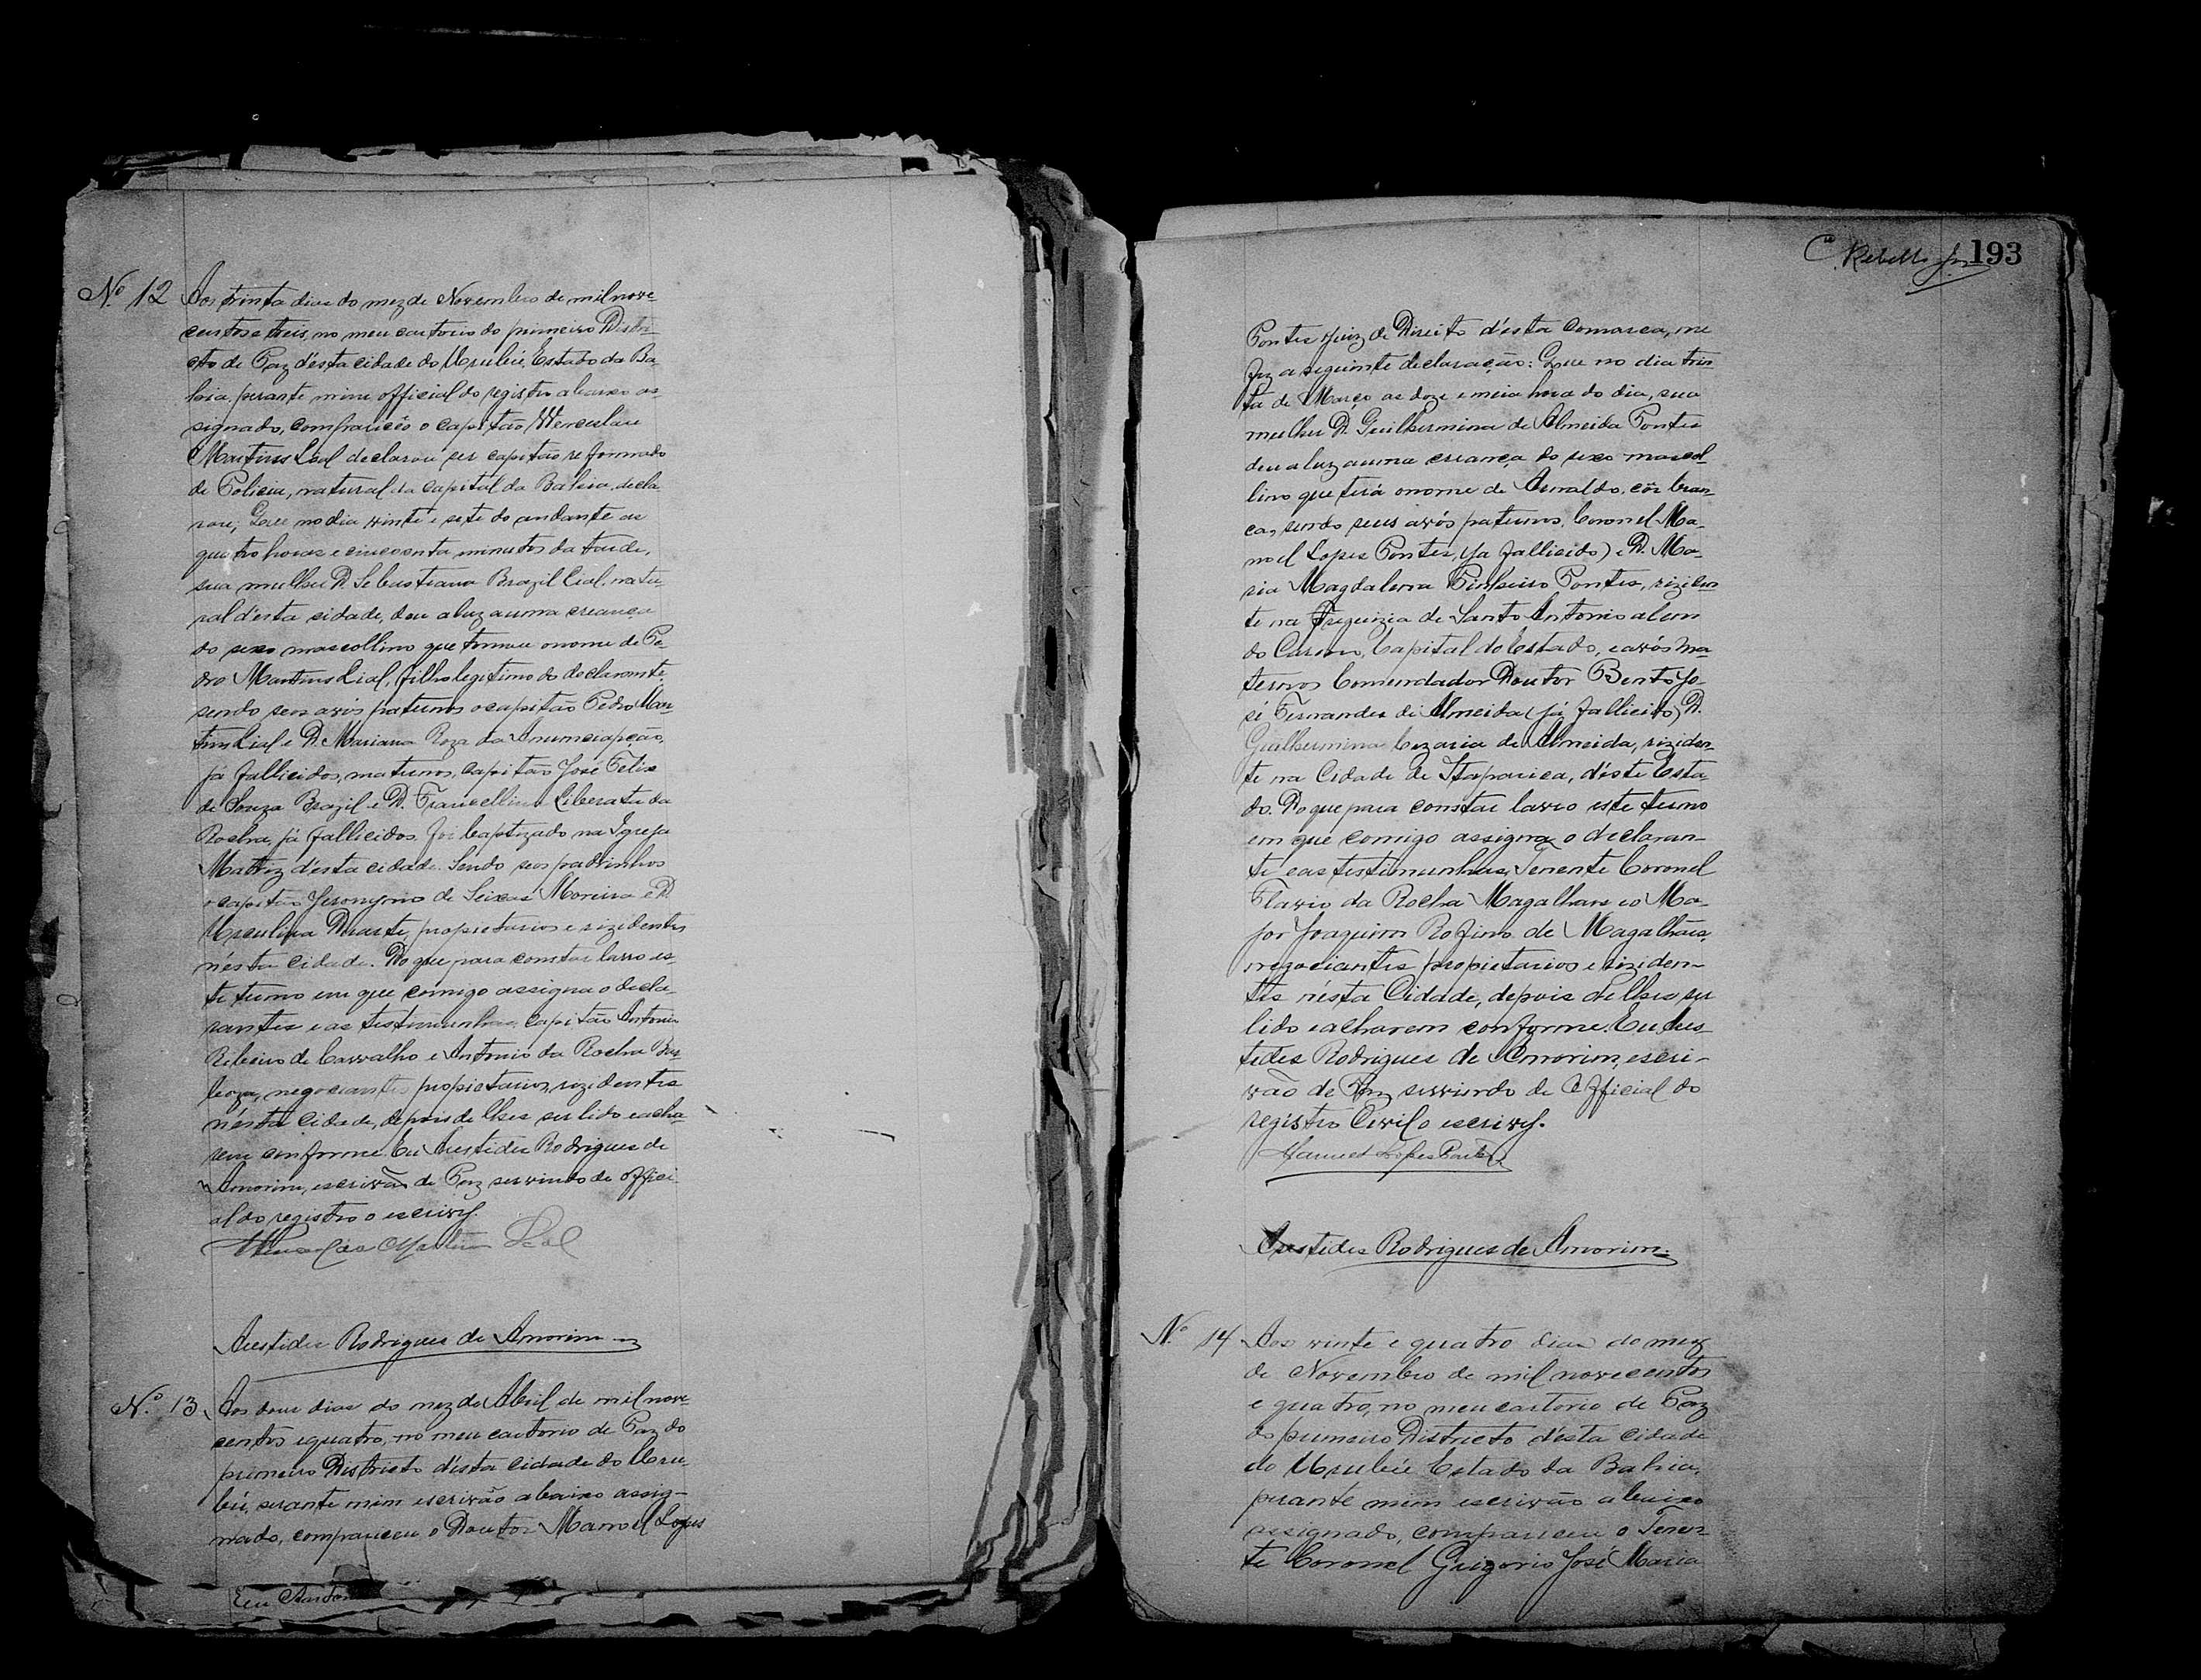 Nº 12 Aos trinta dias do mez de Novembro de mil nove-
centos e treis, no meu cartorio do primeiro Distri-
cto de Paz d'ésta cidade do Urubú, Estado da Ba-
hia, perante mim official do registro abaixo as-
signado, compareceo o capitão Herculano
Martins Leal declarou ser capitão reformado
de Policia, natural da capital da Bahia, decla-
rou; Que no dia vinte e sete do andante as
quatro horas e cincoenta minutos da tarde,
sua mulher D. Sebastiana Brazil Leal, natu-
ral d'ésta cidade, deu a luz a uma creança
do sexo mascollino que tomou o nome de Pe-
dro Martins Leal, filho legitimo do declarante,
sendo seus avós paternos o capitão Pedro Mar-
tins Leal e D. Marianna Roza da
já fallicidos, maternos, capitão José Felix
de Souza Brazil e D. Francellina Liberata da
Rocha, já fallicidos. Foi baptizado na Igreja
Matriz d'ésta cidade. Sendo seos padrinhos
o capitão Jeronymo de Seixas Moreira e D.
Ursulina Duarte, propietarios e rizidentes
n'ésta cidade. Do que para constar lavro es-
te termo em que comigo assigna o decla-
rantes e as testimunhas, capitão Antonio
Ribeiro de Carvalho e Antonio da Rocha Bar-
boza, negociantes, propietarios, rizidentes
n'ésta cidade, depois de lhes ser lido e acha-
rem conforme. Eu Arestides Rodrigues de
Amorim, escrivão de Paz servindo de offici-
al do registro o escrivy.
Herculano Martins Leal
Arestides Rodrigues de Amorim
Nº 13 Aos dous dias do mez de Abril de mil nove-
centos e quatro, no meu cartorio de Paz do
primeiro Districto d'ésta cidade do Uru-
bú, perante mim escrivão abaixo assig-
nado, compareceu o Doutor Manoel Lopes
Eu
Rebello 193
Pontes Juiz de Direito d'ésta Comarca, me
fez a siguinte declaração: Que no dia trin-
ta de Março as doze e meia hora do dia, sua
mulher D. Guilhermina de Almeida Pontes
deu a luz a uma creança do sexo mascol-
lino que terá o nome de Arnaldo, côr bran-
ca, sendo seus avós paternos, Coronel Ma-
noel Lopes Pontes, (ja fallicido) e D. Ma-
ria Magdalena Pinheiro Pontes, riziden-
te na Freguizia de Santo Antonio alem
do Carmo, Capital do Estado, e avós ma-
ternos Comendador Doutor Bento Jo-
sé Fernandes de Almeida (já fallicido) D.
Guilhermina Cezaria de Almeida, riziden-
te na Cidade de Itaparica, d'éste Esta-
do. Do que para constar lavro este termo
em que comigo assigna o declaran-
te e as testimunhas, Tenente Coronel
Flavio da Rocha Magalhães e o Ma-
jor Joaquim Rofino de Magalhães,
negociantes propietarios e riziden-
tes n'ésta Cidade, depois de lhes ser
lido e acharem conforme. Eu Ares-
tides Rodrigues de Amorim, escri-
vão de Paz servindo de Official do
registro Civil o escrivy.
Manuel Lopes Pontes
Arestides Rodrigues de Amorim
Nº 14 Aos vinte e quatro dias do mez
de Novembro de mil novecentos
e quatro, no meu cartorio de Paz
do primeiro Districto d'ésta Cidade
do Urubú Estado da Bahia,
perante mim escrivão abaixo
assignado, compareceu o Tenen-
te Coronel Grigorio José Maria